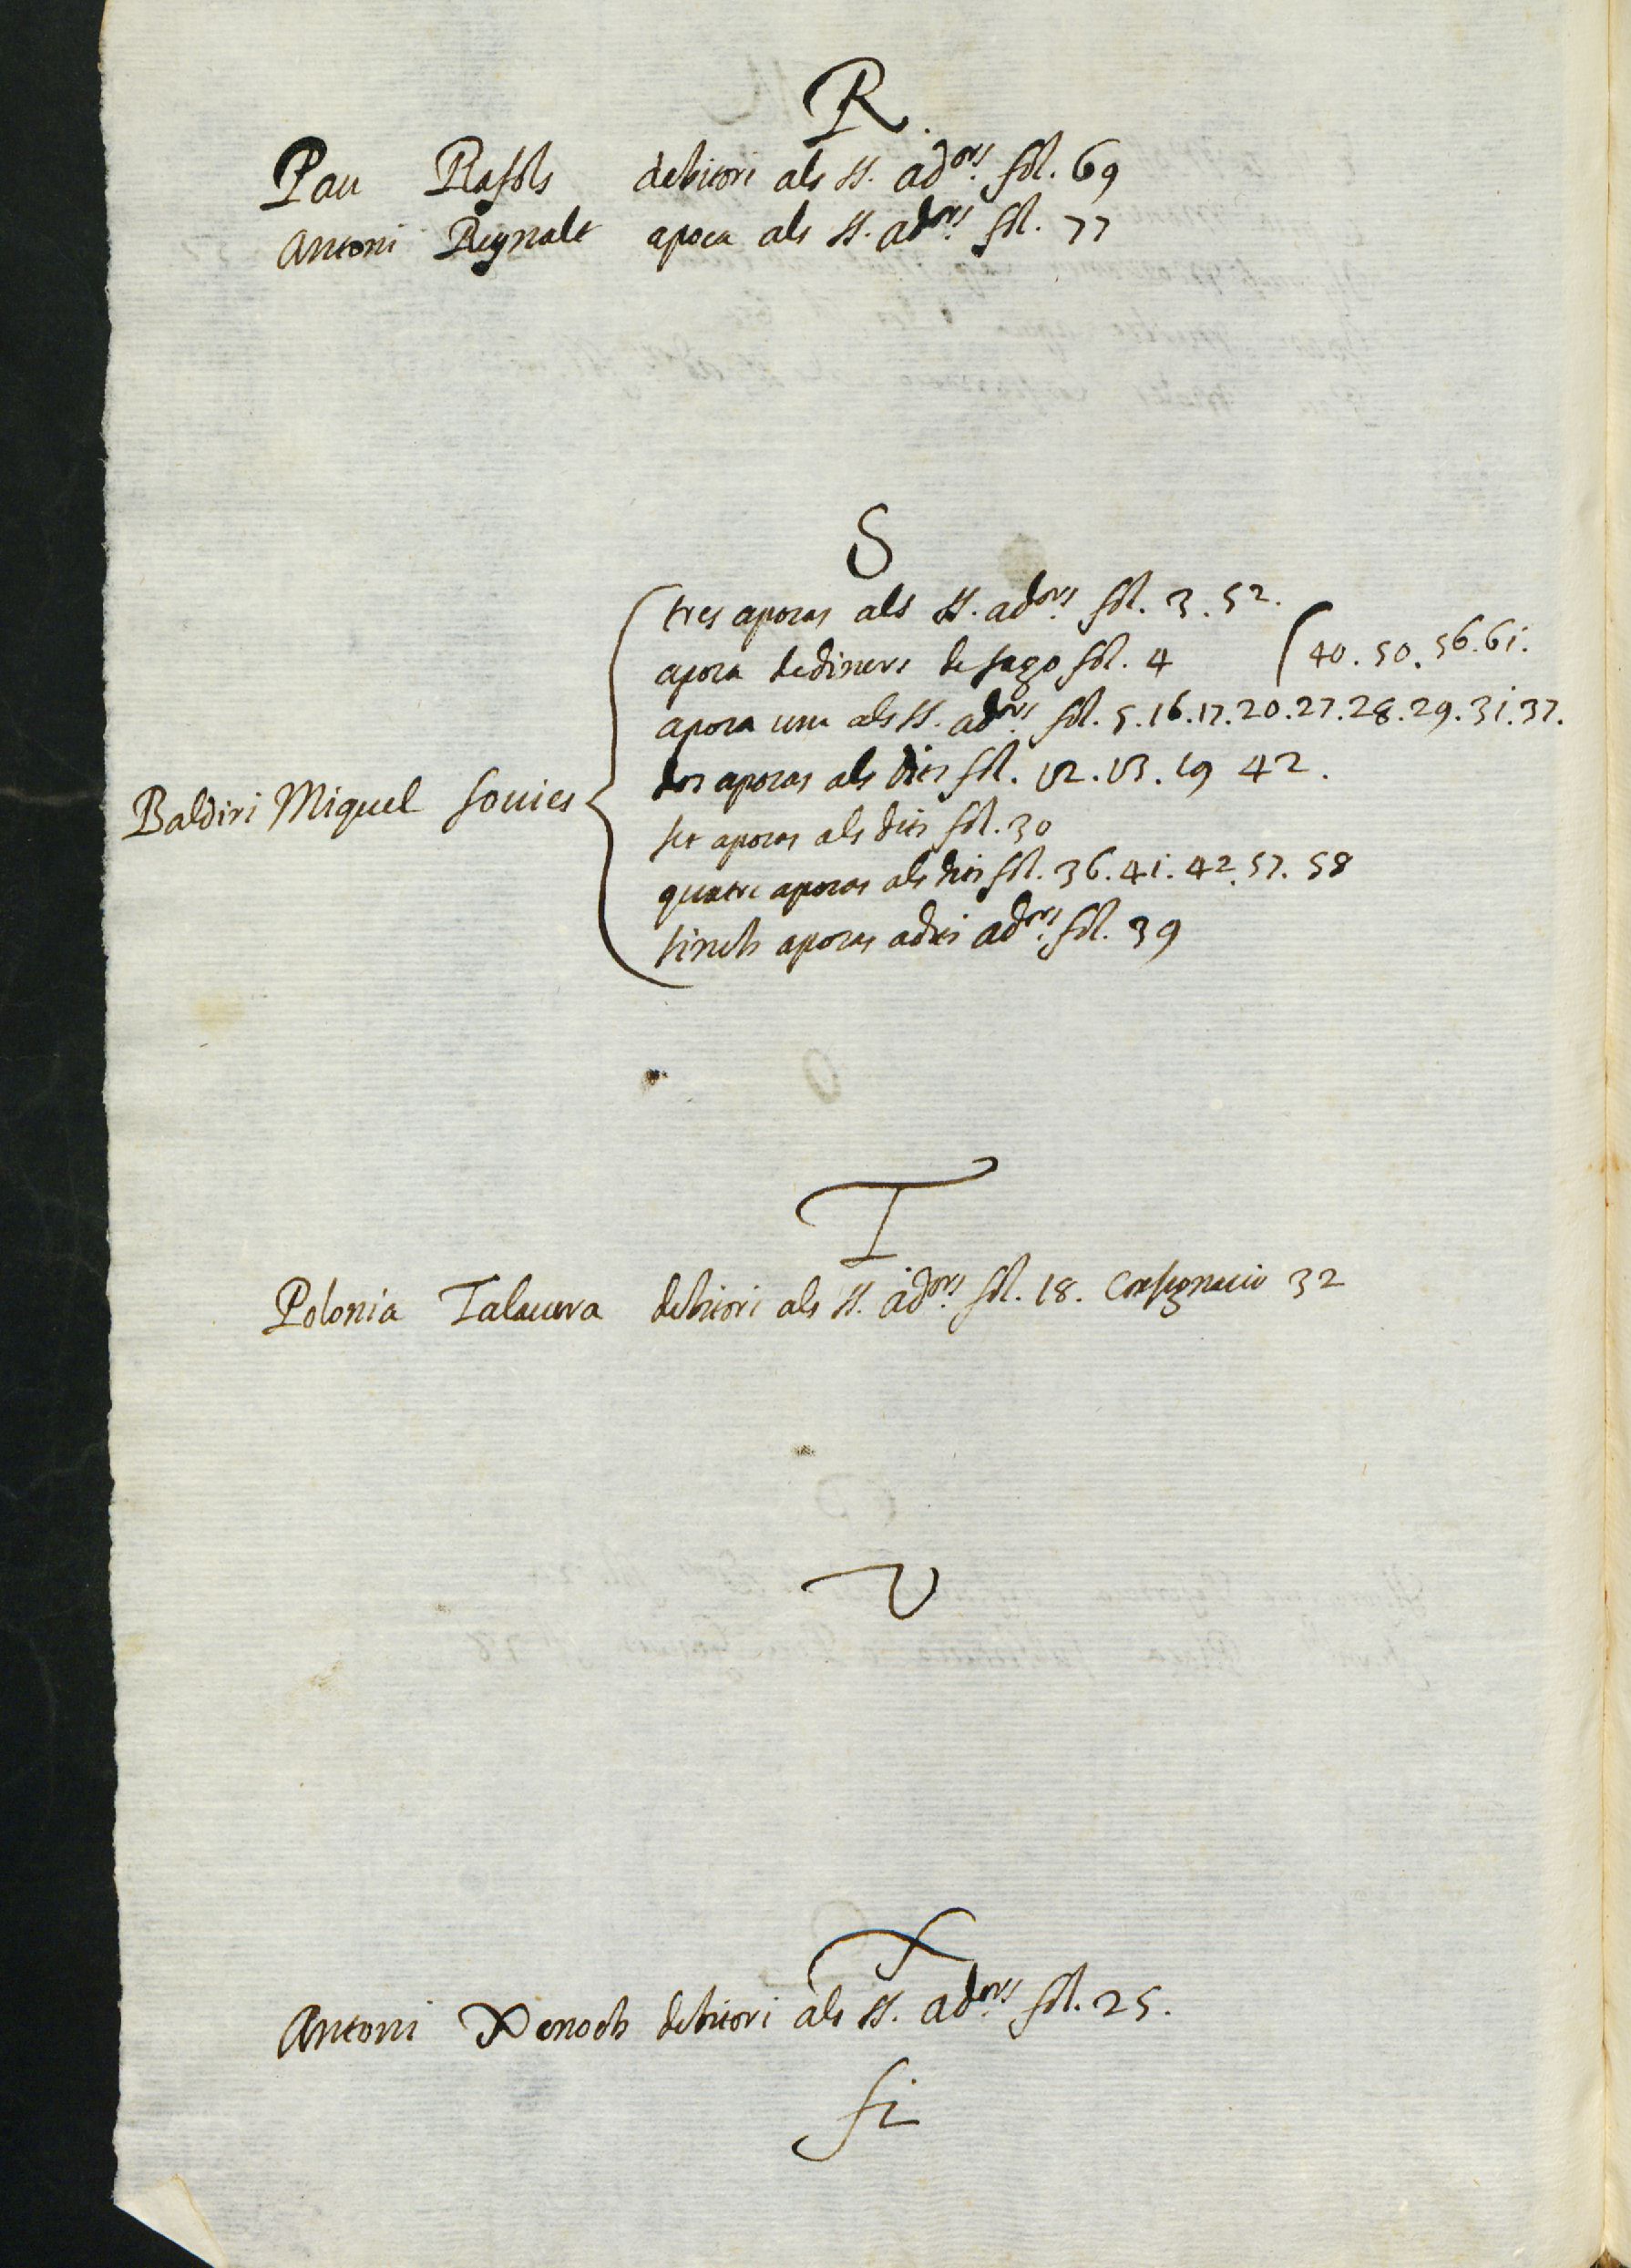 R.
Pau Rafols debitori als ss. adors. fol. 69
Antoni Reynalt apoca als ss. adors. fol. 77
S
tres apocas als ss. adors. fol. 3. 52.
apoca de diners de sago fol. 4 (40. 50. 56. 61.
apoca una als ss. adors. fol. 5. 16. 17. 20. 27. 28. 29. 31. 37.
dos apocas als dits fol. 12. 13. 19 42.
Baldiri Miguel Sovies
set apocas als dits fol. 30
quatre apocas als dits fol. 36. 41. 42. 57. 58
sinch apocas a dits adors. fol. 39
T
Polonia Talavera debitori als ss. adors. fol. 18. Consignacio 32
V
X
Antoni Xenoch debitori als ss. adors. fol. 25.
fi